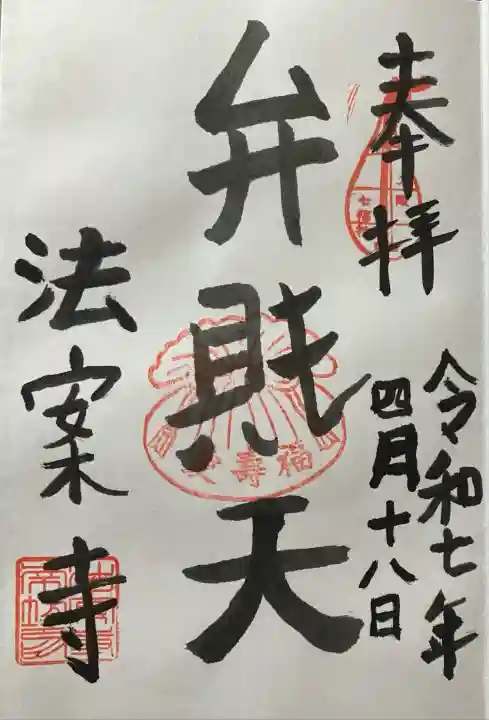 奉拝
令和七年
四月十八日
弁財天
福寿
法案寺